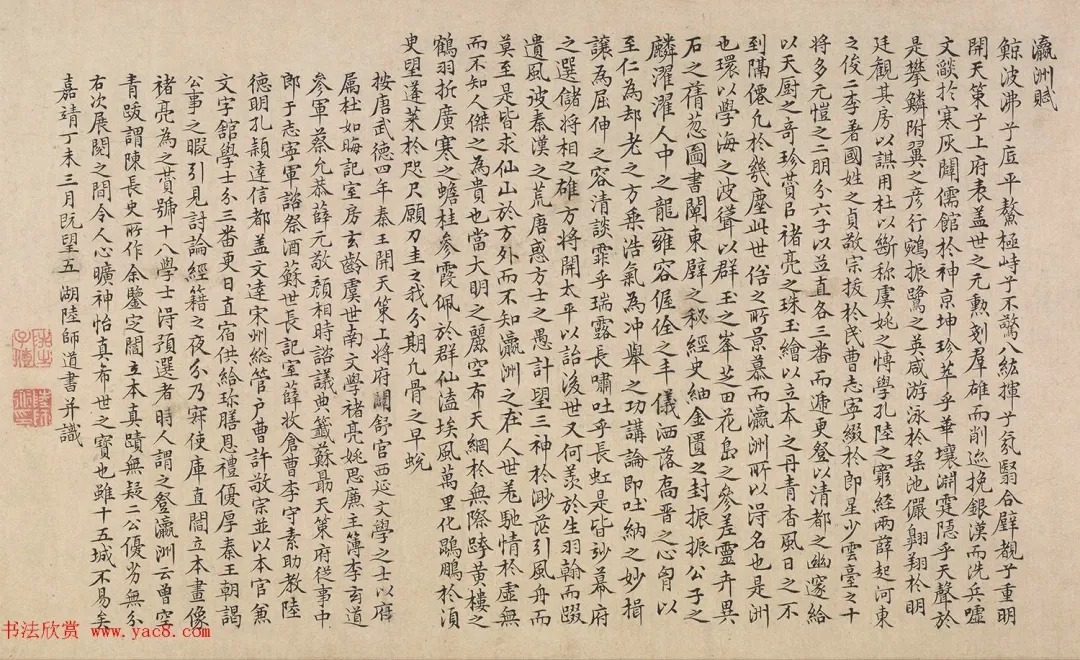 瀛洲賦
鯨波沸乎底平鰲極峙乎不驚八紘揮乎氛翳合璧覩乎重明
開天策乎上府表蓋世之元勲刻羣雄而削迹挽銀漢而洗兵噓
文燄於寒灰闢儒館於神京坤珍萃乎華壤淵霆隱乎天聲於
是攀鱗附翼之彥行鵷振鷺之英咸游泳於瑤池儼翱翔於明
廷觀其房以謀用杜以斷称虞姚之博學孔陸之窮經兩薛起河東
之俊二李著國姓之貞敬宗拔於民曹志寧綴於郎星少雲臺之十
將多元愷之二朋分六子以並直各三番而遞更登以清都之幽邃給
以天厨之奇珍賛以褚亮之珠玉繪以立本之丹青杳風日之不
到隔僊凡於幾塵此世俗之所景慕而瀛洲所以得名也是洲
也環以學海之波聳以群玉之峯芝田花島之參差靈卉異
石之蒨葱圖書闡東壁之秘經史紬金匱之封振振公子之
麟濯濯人中之龍雍容偓佺之丰儀洒落高晋之心胷以
至仁為却老之方乘浩氣為冲舉之功講論即吐納之妙揖
讓為屈伸之容清談霏乎瑞露長嘯吐乎長虹是皆妙幕府
之選儲將相之雄方將開太平以詒後世又何羨於生羽翰而躡
遺風彼秦漢之荒唐惑方士之愚計望三神於渺茫引風舟而
莫至是皆求仙山於方外而不知瀛洲之在人世羌馳情於虛無
而不知人傑之為貴也當大明之麗空布天網於無際躋黃樓之
鶴羽折廣寒之蟾桂參霞佩於群仙溘埃風萬里化鵾鵬於須
臾望蓬萊於咫尺願刀圭之我分期凡骨之早蛻
按唐武德四年秦王開天策上將府開舒宫西延文學之士以府
属杜如晦記室房玄齡虞世南文學褚亮姚思廉主簿李玄道
參軍蔡允恭薛元敬顏相時諮議典籤蘇勗天策府從事中
郎于志寧軍諮祭酒蘇世長記室薛收倉曹李守素助教陸
德明孔穎達信都盖文達宋州總管户曹許敬宗並以本官兼
文字館學士分三番更日直宿供給珎膳恩禮優厚秦王朝謁
公事之暇引見討論經籍之夜分乃寐使庫直閻立本畫像
褚亮為之賛號十八學士淂預選者時人謂之登瀛洲云曾空
青跋謂陳長史所作余鑒定閻立本真蹟無疑二公優劣無分
右次展閱之間令人心曠神怡真希世之寶也雖十五城不易矣
嘉靖丁未三月既望五湖陸師道書并識
书法欣赏
www.yac8.com